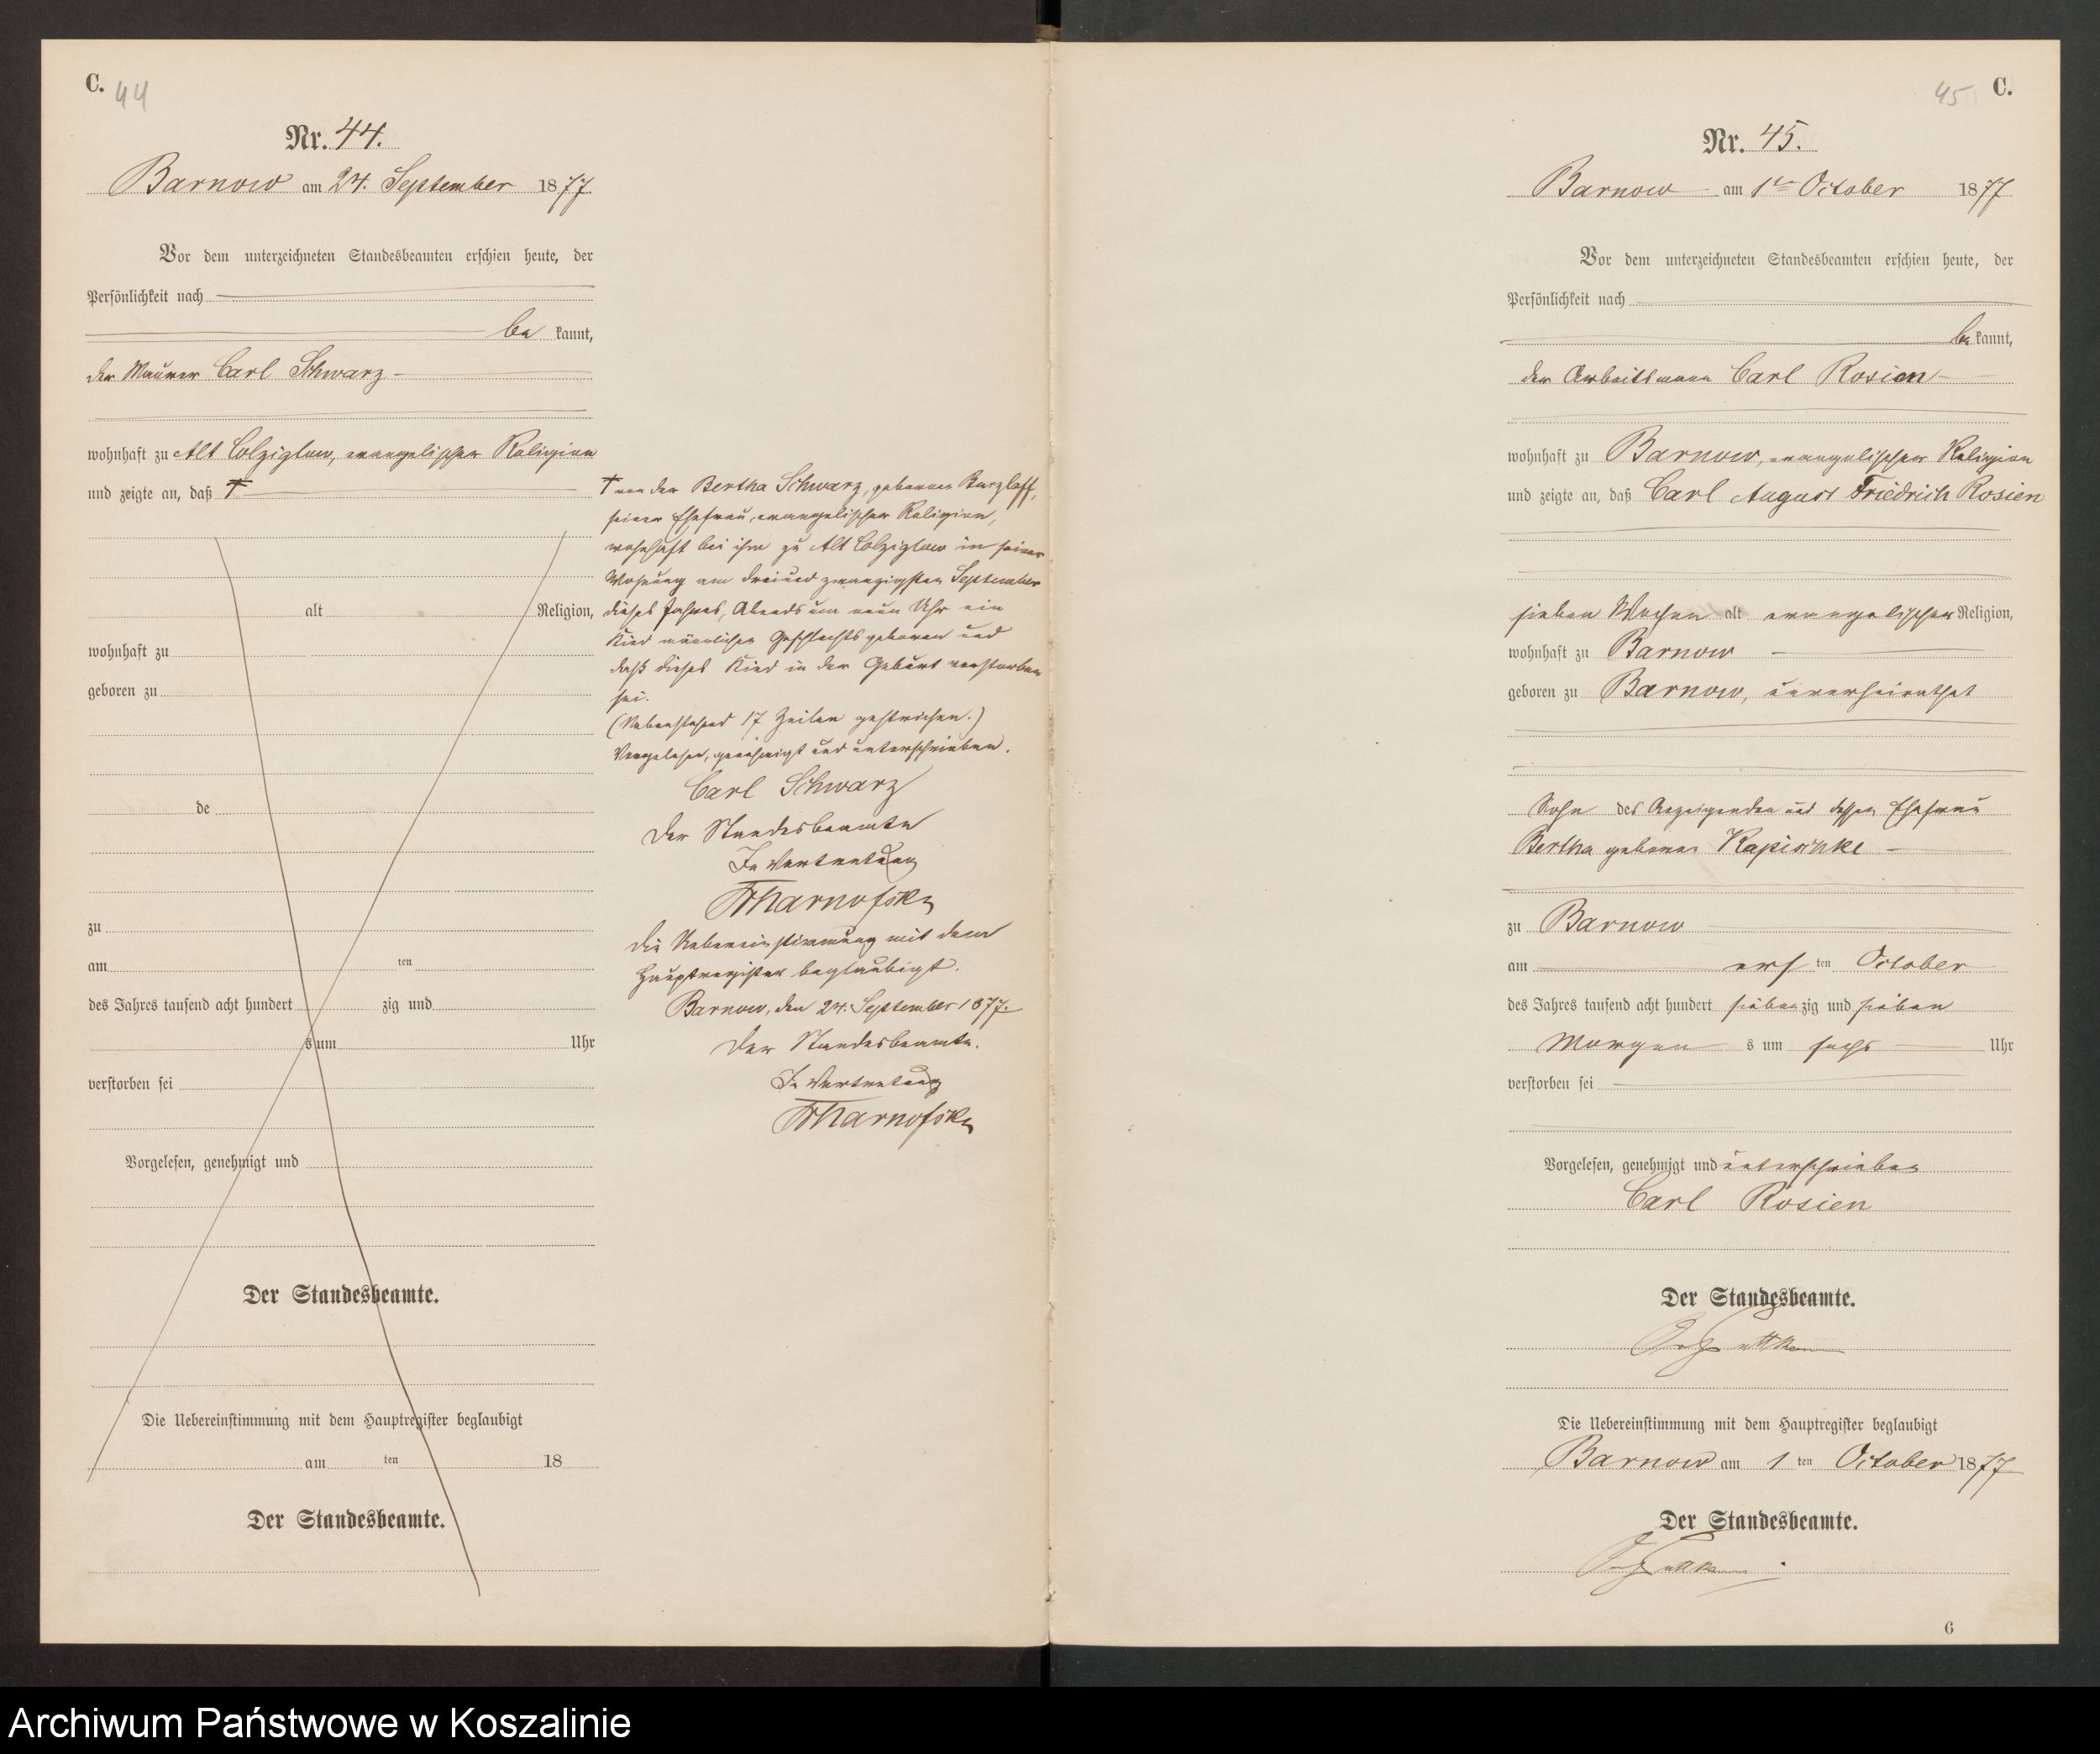 C. 44
Nr. 44.
Barnow am 24. September 1877.
Vor dem unterzeichneten Standesbeamten erschien heute, der
Persönlichkeit nach
be kannt,
der Maurer Carl Schwarz
wohnhaft zu Alt Colziglow, evangelischer Religion
und zeigte an, daß †
alt Religion,
wohnhaft zu
geboren zu
de
zu
am ten
des Jahres tausend acht hundert zig und
s um Uhr
verstorben sei
Vorgelesen, genehmigt und
Der Standesbeamte.
Die Uebereinstimmung mit dem Hauptregister beglaubigt
am ten 18
Der Standesbeamte.
† von der Bertha Schwarz, geborenen Burzlaff,
seiner Ehefrau, evangelischer Religion,
wohnhaft bei ihm zu Alt Colziglow in seiner
Wohnung am dreiundzwanzigsten September
dieses Jahres, Abends um neun Uhr ein
Kind männlichen Geschlechts geboren und
daß dieses Kind in der Geburt verstorben
sei.
(Nebenstehend 17 Zeilen gestrichen.)
Vorgelesen, genehmigt und unterschrieben.
Carl Schwarz
Der Standesbeamte
In Vertretung
Die Uebereinstimmung mit dem
Hauptregister beglaubigt.
Barnow, den 24. September 1877.
Der Standesbeamte.
In Vertretung
45 C.
Nr. 45.
Barnow am 1ten October 1877
Vor dem unterzeichneten Standesbeamten erschien heute, der
Persönlichkeit nach
be kannt,
der Arbeitsmann Carl Rosien
wohnhaft zu Barnow, evangelischer Religion
und zeigte an, daß Carl August Friedrich Rosien
sieben Wochen alt evangelischer Religion,
wohnhaft zu Barnow
geboren zu Barnow, unverheirathet
Sohn des Anzeigenden und dessen Ehefrau
Bertha geborene Kapischke
zu Barnow
am ersten October
des Jahres tausend acht hundert siebenzig und sieben
Morgens um sechs Uhr
verstorben sei
Vorgelesen, genehmigt und unterschrieben
Carl Rosien
Der Standesbeamte.
Die Uebereinstimmung mit dem Hauptregister beglaubigt
Barnow am 1 ten October 1877
Der Standesbeamte.
6
Archiwum Państwowe w Koszalinie